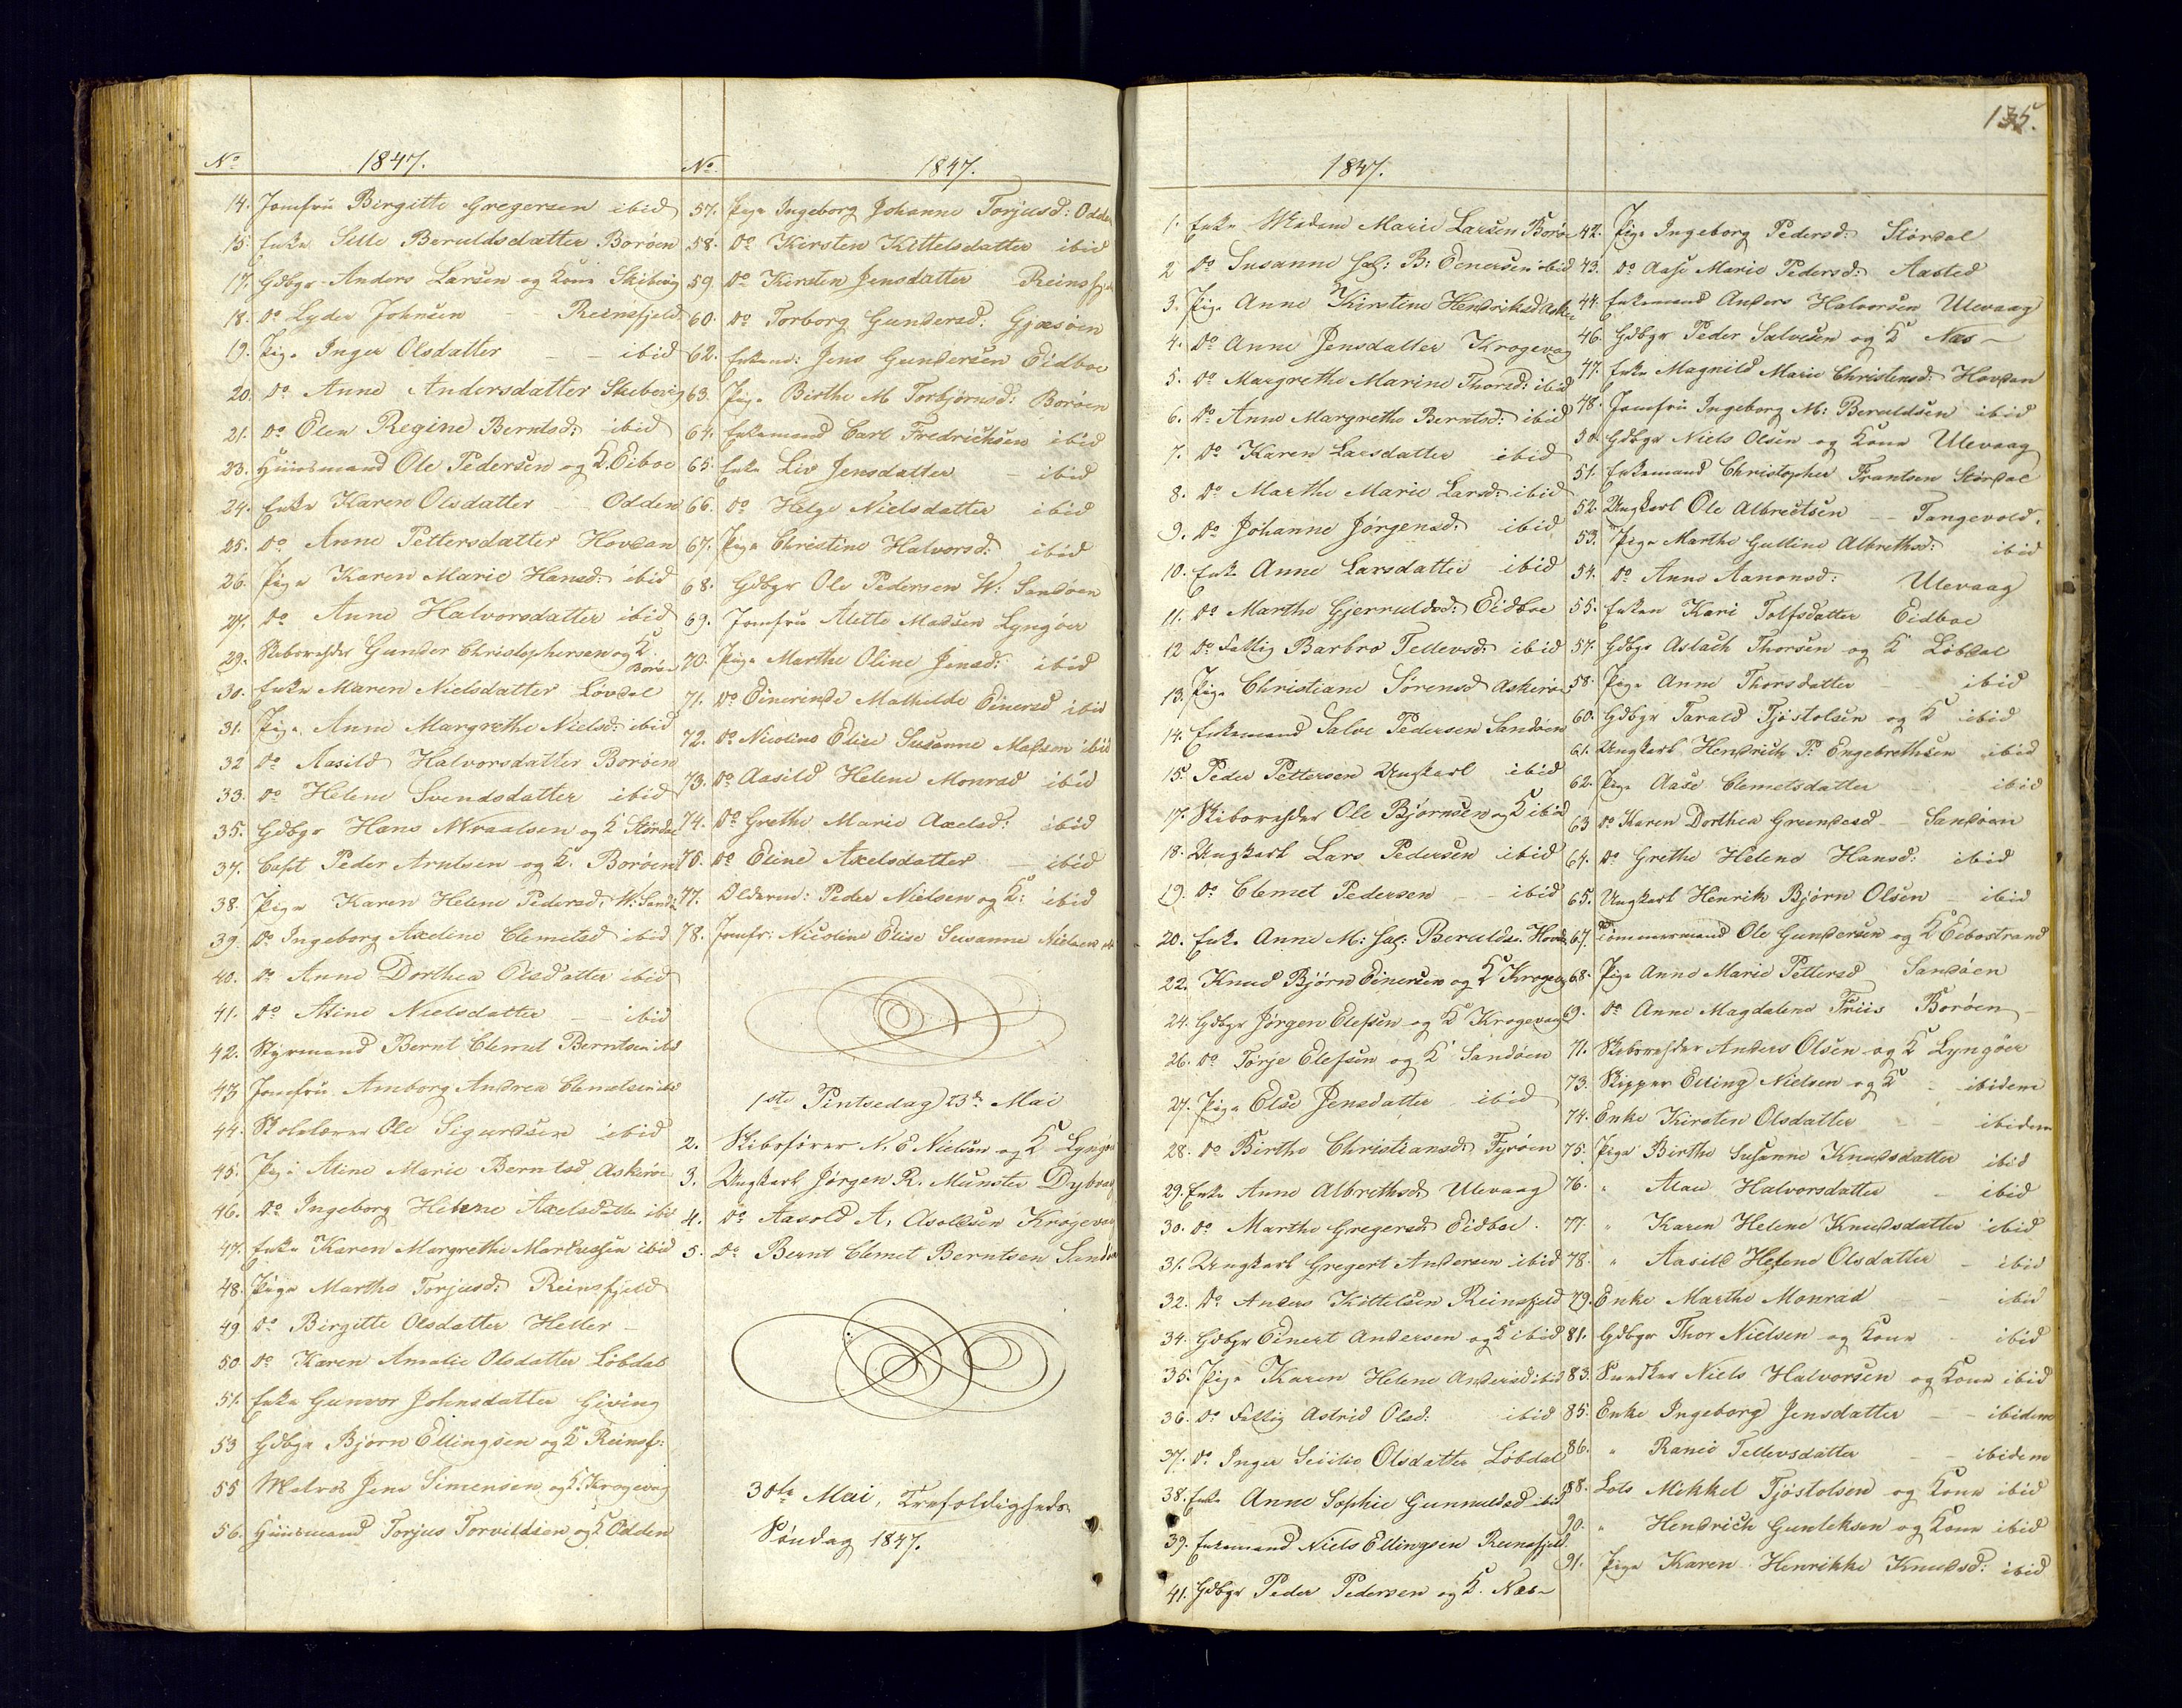 No 1847.
14. Jomfru Birgitte Gregersen ibid
15. Enke Sille Beruldsdatter Borøen
17. Gdbgr Anders Larsen og Kone Skibvig
18. Do Lyder Johnsen - - Reinsfjeld
19. Pige Inger Olsdatter - - ibid
20. Do Anne Andersdatter Skibevig
21. Do Olea Regine Berntsd: ibid
23. Huusmand Ole Pedersen og K. Eiboe
24. Enke Karen Olsdatter - Odden
25. Do Anne Pettersdatter Hovdan
26. Pige Karen Marie Hansd: ibid
27. Do Anne Halvorsdatter ibid
29. Gunder Christophersen og K. Borøen
30. Enke Maren Nielsdatter Løvdal
31. Pige Anne Margrethe Nielsd: ibid
32 Do Aasild Halvorsdatter Borøen
33. Do Helene Svendsdatter ibid
35. Gdbgr Hans Wraalsen og K Størdal
37. Capt Peder Arntsen og K. Borøen
38. Pige Karen Helene Pedersd. W: Sandø
39. Do Ingeborg Axeline Clemetsd ibid
40. Do Anne Dorthea Olsdatter ibid
41. Do Aline Nielsdatter - - ibid
42. Styrmand Bernt Clemet Berntsen ibid
43 Jomfru Amborg Andrea Clemetsen ibid
44. Skolelærer Ole Sigurdsen ibid
45. Pige Aline Marie Berntsd Askerøe
46. Do Ingeborg Helene Axelsdatter ibid
47. Enke Karen Margrethe Markussen ibid
48. Pige Marthe Torjusd: Reinsfjeld
49 Do Birgitte Olsdatter Heller -
50 Do Karen Amalie Olsdatter Løbdal
51. Enke Gunvor Johnsdatter Giving
53 Gdbgr Bjørn Ellingsen og K Reinsf:
55 Matros Jens Simensen og K. Krogevag
56. Huusmand Torjus Torvildsen og K Odden
No 1847.
57. Pige Ingeborg Johanne Torjusd: Odden
58. Do Kirsten Kittelsdatter ibid
59 Do Kirsten Jensdatter Reinsfjeld
60. Do Torborg Gundersd: Gjæsøen
62. Enkemd: Jens Gundersen Eidboe
63. Pige Birthe M Torbjørnsd: Borøen
64. Enkemand Carl Fredrichsen ibid
65. Enke Liv Jensdatter - ibid
66. Do Helge Nielsdatter ibid
67. Pige Christine Halvorsd: ibid
68. Gdbgr Ole Pedersen W: Sandøen
69. Jomfru Alette Madsen Lyngøer
70. Pige Marthe Oline Jensd: ibid
71. Do Einerinde Mathilde Einersd ibid
72. Do Nicoline Elise Susanne Madsen ibid
73. Do Aasild Helene Monrad ibid
74. Do Grethe Marie Axelsd: ibid
75. Do Eline Axelsdatter - ibid
77. Peder Nielsen og K: ibid
78. Jomfr: Nicoline Elise Susanne Nielsen ib
1ste Pintsedag 23de Mai
2. Skibsfører N. E Nielsen og K Lyngør
3. Ungkarl Jørgen R. Münster Dybvag
4. Do Aasold A. Asoldsen Krogevag
5. Do Bernt Clemet Berntsen Sandø
30te Mai, Trefoldigheds-
Søndag 1847.
135.
1847.
1. Enke Madame Marie Larsen Borøe
2 Do Susanne sal: B: Einersen ibid
3. Pige Anne Kirstine Hendriksd Asker
4. Do Anne Jensdatter Krogevag
5. Do Margrethe Marine Thorsd: ibid
6. Do Anne Margrethe Berntsd: ibid
7. Do Karen Larsdatter ibid
8. Do Marthe Marie Larsd: ibid
9. Do Johanne Jørgensd: ibid
10. Enke Anne Larsdatter ibid
11. Do Marthe Gjeruldsd: Eidboe
12 Do Fattig Barbro Tellevsd: ibid
13. Pige Christiane Sørensd Askerøe
14. Enkemand Salve Pedersen Sandøen
15. Peder Pettersen Ungkarl ibid
17. Ole Bjørnsen og K ibid
18. Ungkarl Lars Pedersen ibid
19. Do Clemet Pedersen - - ibid
20. Enke Anne M: sal: Beruldsen Hovdan
22. Knud Bjørn Einersen og K Krogevag
24. Gdbgr Jørgen Elefsen og K Krogevaag
26. Do Torje Elefsen og K Sandøen
27. Pige Else Jensdatter ibid
28. Do Birthe Christiansd. Fyrøen
29. Enke Anne Albrethsd: Ulevaag
30. Do Marthe Gregersd Eidboe.
31. Ungkarl Gregert Andersen ibid
32. Do Anders Kittelsen Reinsfjeld
34. Gdbgr Einert Andersen og K ibid
35. Pige Karen Helene Andersd ibid
36. Do Fattig Astrid Olsd: ibid
37. Do Inger Olsdatter Løbdal
38. Enke Anne Sophie Gunnuldsd ibid
39. Enkemand Niels Ellingsen Reinsfjeld
41. Gdbgr Peder Pedersen og K. Næs-
42. Pige Ingeborg Pedersd: Størdal
43. Do Aase Marie Pedersd: Aasted
44. Enkemand Anders Halvorsen Ulevaag
46. Gdbgr Peder Salvesen og K Næs -
47. Enke Magnild Marie Christensd: Hovdan
48. Jomfru Ingeborg M: Beruldsen ibid
50 Gdbgr Niels Olsen og Kone Ulevaag
51. Enkemand Christopher Frantsen Størdal
52. Ungkarl Ole Albrectsen - Tangevold.
53. Pige Marthe Gulline Albrethsd: ibid
54. Do Anne Aanonsd: Ulevaag
55. Enken Kari Tolfsdatter Eidboe
57. Gdbgr Aslach Thorsen og K Løbdal
58. Pige Anne Thorsdatter ibid
60. Gdbgr Tarald Tjøstolsen og K ibid
61. Ungkarl Hendrich P: Engebrethsen ibid
62. Pige Aase Clemetsdatter ibid
63 Do Karen Dorthea Greendesd - Sandøen
64. Do Grethe Helene Hansd: ibid
65. Ungkarl Henrik Bjørn Olsen - ibid
67. Tømmermand Ole Gundersen og K Eebostrand
68. Pige Anne Marie Pettersd Sandøen
69. Do Anne Magdalene Friis Borøen -
71. Anders Olsen og K Lyngøer
73. Skipper Elling Nielsen og K - ibidem
74. Enke Kirsten Olsdatter - ibidem
75. Pige Birthe Susanne Knudsdatter ibid
76. " Halvorsdatter - ibid
77. " Karen Helene Knudsdatter ibid
78. " Aasild Helene Olsdatter - ibid
79. Enke Marthe Monrad - ibid
81. Gdbgr Thor Nielsen og Kone - ibid
83. Niels Halvorsen og Kone ibid
85. Enke Ingeborg Jensdatter - - ibidem
86. " Ranei Tellevsdatter - - ibidem
88. Lots Mikkel Tjøstolsen og Kone ibid
90. " Hendrich Gunleksen og Kone ibid
91. Pige Karen Henrikke Knudsd: ibid